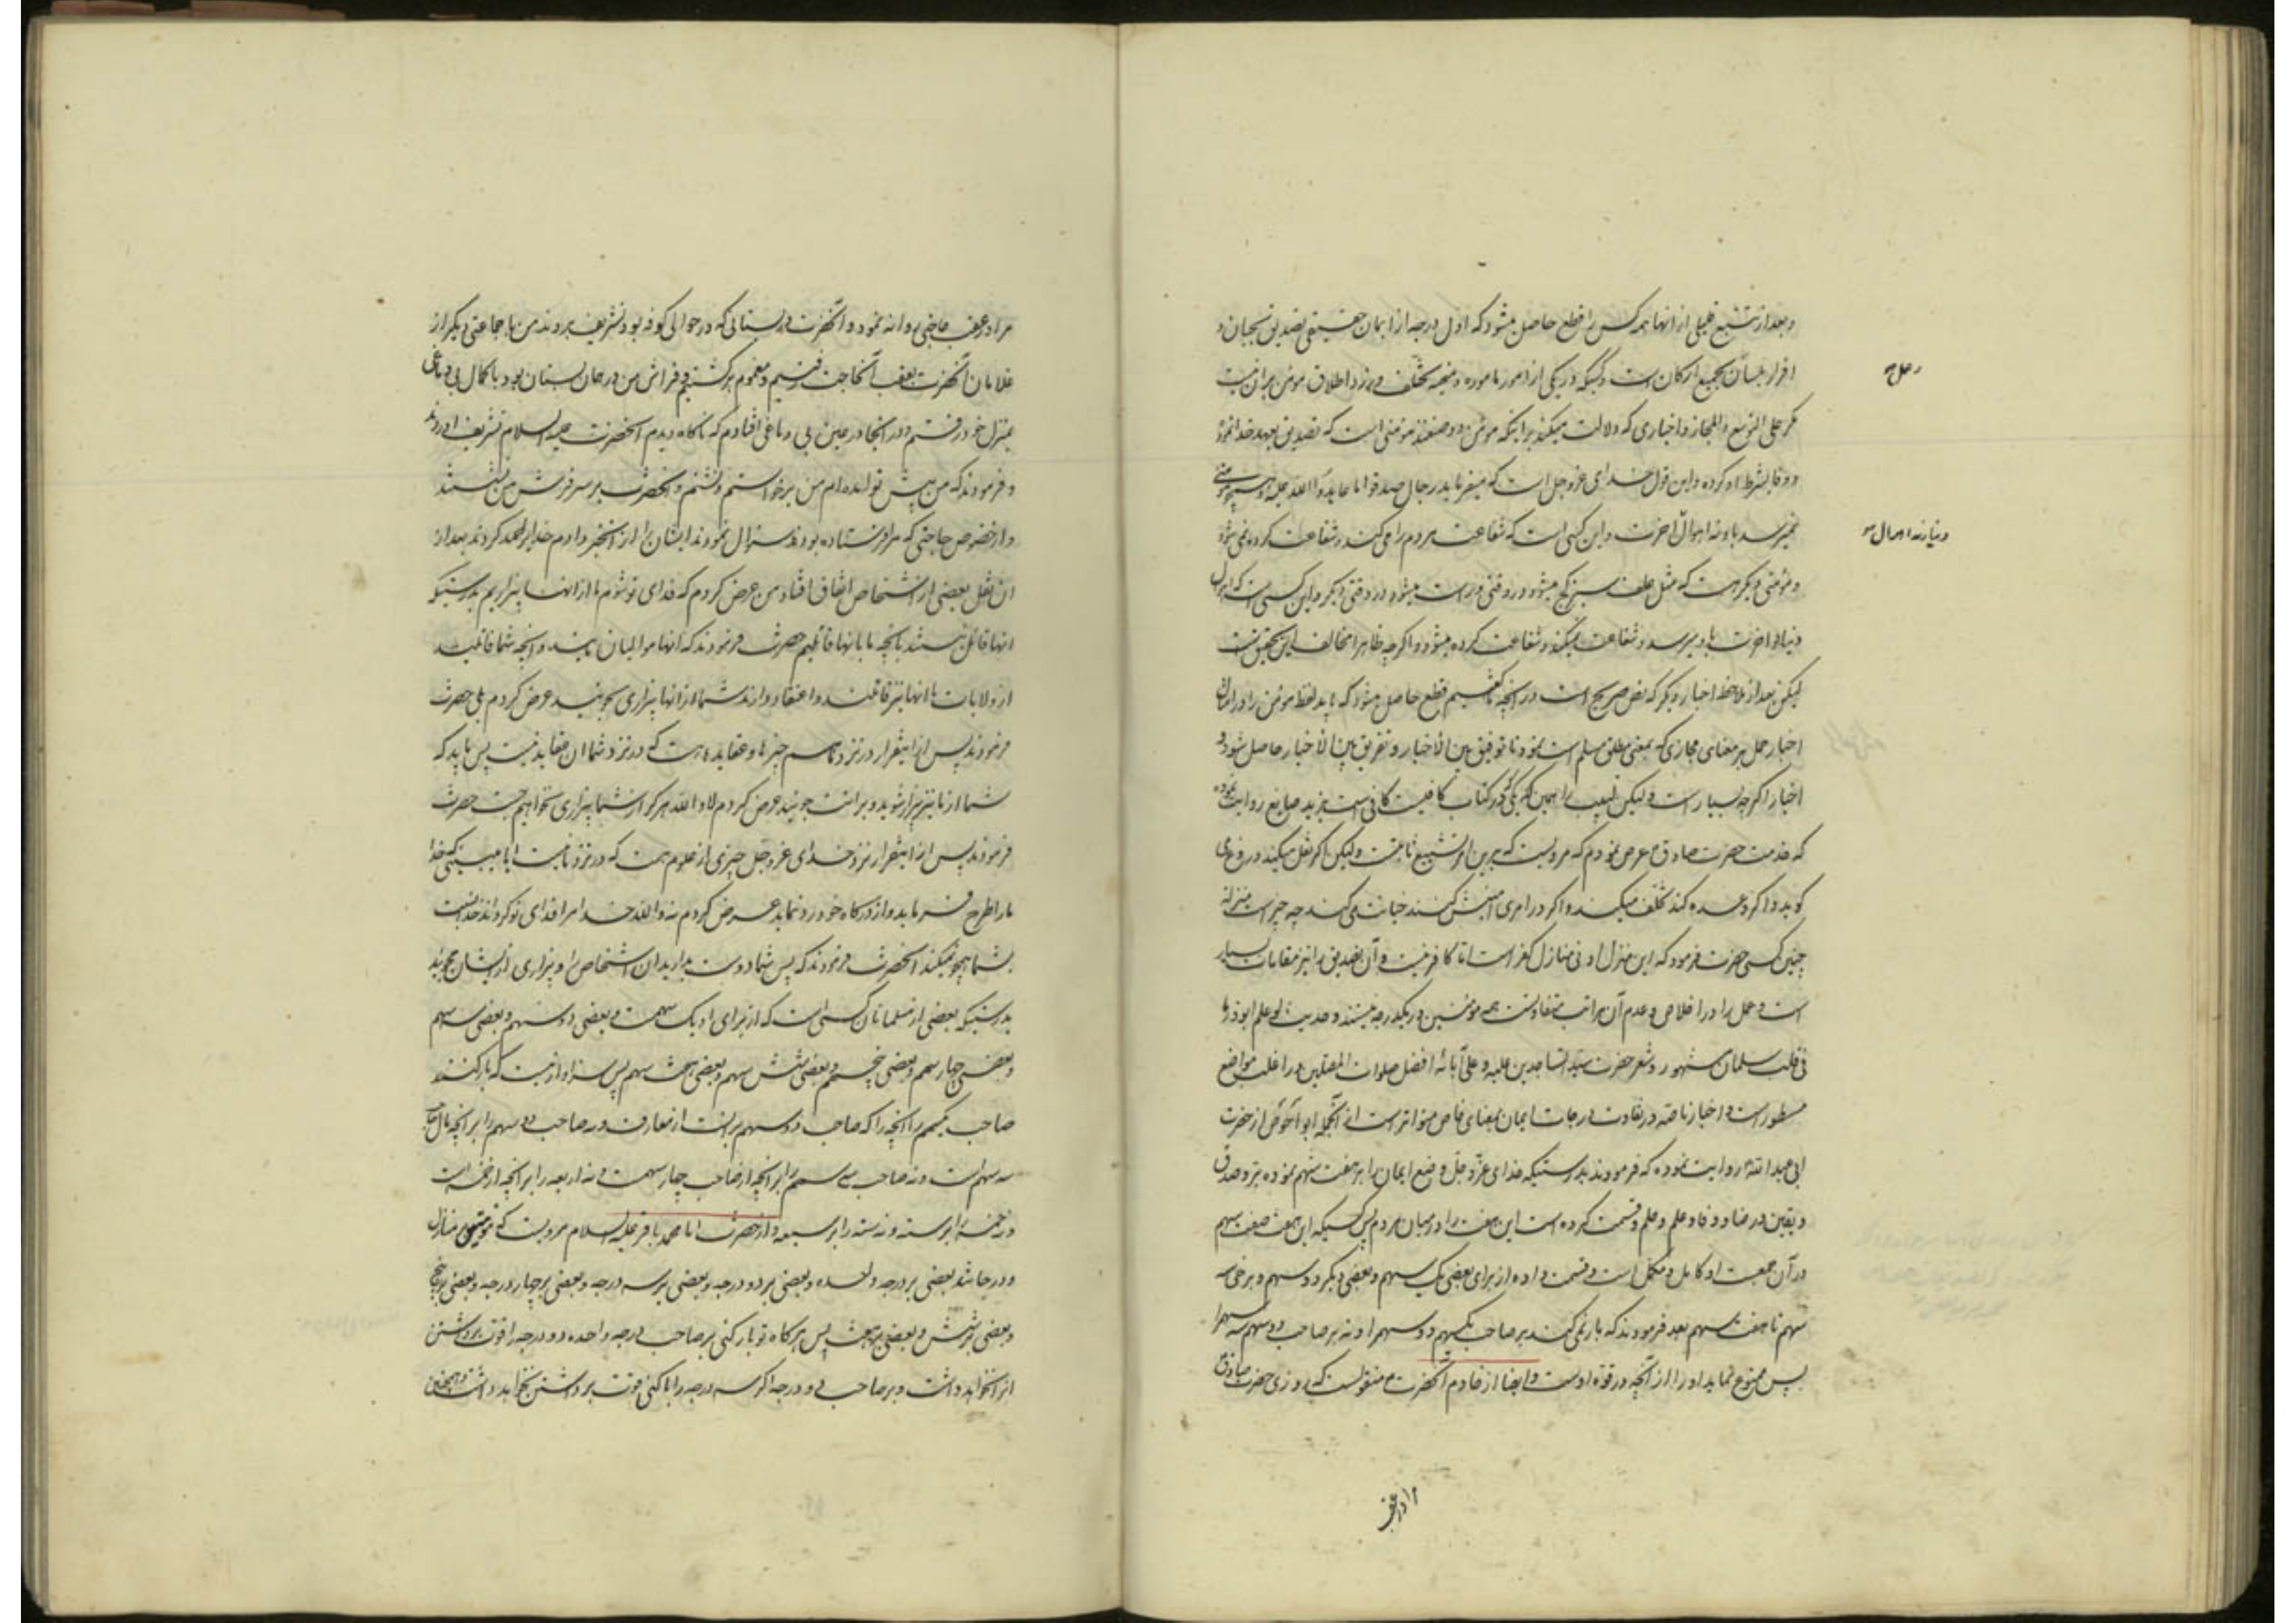 و بعد از تتبع قلیلی از انها همه کس را قطع حاصل میشود که اول درجه از ایمان حقیقی تصدیق بجنان و
اقرار بلسان بجمیع ارکان است و کسیکه در یکی از امور مأموره و منهیه تخلف ورزد اطلاق مومن بران نیست
مگر علی التوسع و المجاز و اخباری که دلالت میکند بر اینکه مومن دو صنفند مومنی است که تصدیق بعهد خدا نموده
و وفا بشرط او کرده و این قول خدای عزوجل است که میفرماید رجال صدقوا ما عاهدوا الله علیه و
نمیرسد باو نه اهوال اخرت و این کسی است که شفاعت مردم را میکند و شفاعت کرده نمی شود
و مؤمنی دیگر است که مثل علف سبز کج میشود در وقتی و راست میشود در وقتی دیگر و این کسی است که اهوال
دنیا و اخرت باو میرسد و شفاعت نمیکند و شفاعت کرده میشود و اگرچه ظاهرا مخالف این تحقیق است
لیکن بعد از ملاحظه اخبار دیگر که نص صریح است در آنچه ما گفتیم قطع حاصل میشود که باید لفظ مومن را در امثال
اخبار حمل بر معنای مجازی که بمعنی مطلق مسلم است نمود تا توفیق بین الاخبار و تفریق بین الاخبار حاصل شود و
اخبار اگرچه بسیار است ولیکن لبیب را همین که در کتاب کافیست کافی است یزید صایغ روایت نموده
که خدمت حضرت صادق ع عرض نمودم که مردیست که برین امر تشیع ثابتست ولیکن اگر نقل میکند دروغ می
کوید و اگر وعده کند تخلف میکند و اگر در امری امینش کنند خیانت می کند چه چیز است منزله
چنین کسی حضرت فرمود که این منزل ادنی منازل کفر است اما کافر نیست و آن تصدیق را نیز مقامات بسیار
است و عمل را در اخلاص و عدم آن مراتب متفاوتست همه مومنین در یکدرجه نیستند و حدیث لو علم ابوذر ما
فی قلب سلمان مشهور و شعر حضرت سید الساجدین علیه و علی آبائه افضل صلوات المصلین در اغلب مواضع
مسطور است و اخبار ناصه در تفاوت درجات ایمان بمعنای خاص متواتر است از آنجمله ابو احوص از حضرت
ابی عبد الله ع روایت نموده که فرمودند بدرستیکه خدای عزّ و جلّ وضع ایمان را بر هفت سهم نموده بر و صدق
و یقین و رضا و وفا و علم و حلم و قسمت کرده است این هفت را در میان مردم پس کسیکه این هفت سهم
در آن جمعست او کامل و متحمل است و قسمت داده از برای بعضی یک سهم و بعضی دیگر دو سهم و برخی سه
سهم تا هفت سهم بعد فرمودند که بار نمی کنند بر صاحب یکسهم دو سهم را و نه بر صاحب دو سهم سه سهم را
پس ممنوع نماید او را از آنچه در قوة اوست و ایضا از خادم آنحضرت منقولست که روزی حضرت صادق
دنیا و نه اهوال
مرا در عقب
مرا در عقب حاجتی روانه نمود و آنحضرت در بستانی که در حوالی کوفه بود تشریف بردند من با جماعتی دیگر از
غلامان آنحضرت بعقب آنحاجت رفتیم و مغموم برگشتیم و فراش من در همان بستان بود با کمال بی دماغی
بمنزل خود رفتم و در آنجا در عین بی دماغی افتادم که ناگاه دیدم آنحضرت علیه السلام تشریف اوردند
و فرمودند که من پیش تو آمده ام من برخواستم و نشستم و آنحضرت بر سر فرش من نشستند
و از خصوص حاجتی که مرا فرستاده بودند سئوال نمودند ایشان را از آن خبر دادم خدا را حمد کردند بعد از
ان نقل بعضی از اشخاص اتفاق افتاد من عرض کردم که فدای تو شوم ما از انها بیزاریم بدرستیکه
انها قائل نیستند بانچه ما بانها قائلیم حضرت فرمودند که انها موالیان مایند و آنچه شما قائلید
از ولایات ما انها نیز قائلند و اعتقاد دارند شما از انها بیزاری میجوئید عرض کردم بلی حضرت
فرمودند پس از اینقرار در نزد ما هم چیزها و عقاید هست که در نزد شما ان عقاید نیست پس باید که
شما از ما نیز بیزار شوید و برائت جوئید عرض کردم لا والله هرگز از شما بیزاری نخواهیم جست حضرت
فرمودند پس از اینقرار نزد خدای عزوجل چیزی از علوم هست که در نزد ما نیست ایا میبینی که خدا
ما را طرح فرماید و از درگاه خود رد نماید عرض کردم نه والله خدا مرا فدای تو گرداند خدا نسبت
بشما هیچو نمیکند آنحضرت فرمودند که پس شما دوست بدارید ان اشخاص را و بیزاری از ایشان مجوئید
بدرستیکه بعضی از مسلمانان کسی است که از برای او یک سهمست و بعضی دو سهم و بعضی سه سهم
و بعضی چهار سهم و بعضی پنج سهم و بعضی شش سهم و بعضی هفت سهم پس سزاوار نیست که بار کنند
صاحب یکسهم را آنچه را که صاحب دو سهم بر انست از معارف و نه صاحب دو سهم را بر آنچه مال صاحب
سه سهم است و نه صاحب سه سهم را بر آنچه از صاحب چهار سهمست و نه اربعه را بر آنچه از خمسه است
و نه خمسه را بر سته و نه سته را بر سبعه و از حضرت امام محمد باقر علیه السلام مرویست که مومنین بر منازل
و درجاتند بعضی بر درجه واحده و بعضی بر دو درجه و بعضی بر سه درجه و بعضی بر چهار درجه و بعضی بر پنج
و بعضی بر شش و بعضی بر هفت پس هرگاه تو بار کنی بر صاحب درجه واحده دو درجه را قوت برداشتن
انرا نخواهد داشت و بر صاحب دو درجه اگر سه درجه را بار کنی قوت برداشتن نخواهد داشت و همچنین